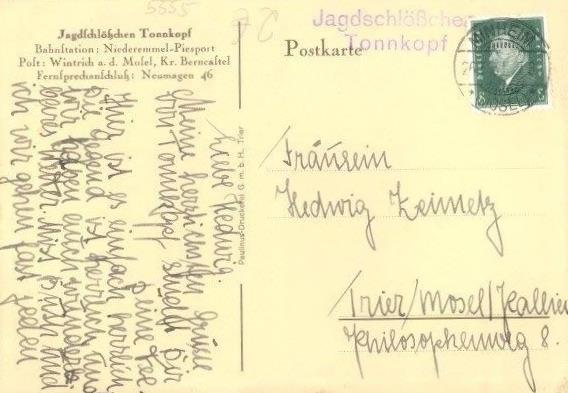 5555
Jagdschlößchen Tonnkopf
Bahnstation: Niederemmel-Piesport
Post: Wintrich a. d. Mosel, Kr. Berncastel
Fernsprechanschluß: Neumagen 46
Postkarte
Jagdschlößchen
Tonnkopf
Paulinus-Druckerei G. m. b. H., Trier
Liebe Hedwig.
Meine herzlichsten Grüße
vom Tonnkopf, sendet Dir
Deine
Hier ist es einfach herrlich
Die Gegend ist herrlich und
wir haben auch wunder
bares Wetter. Wir sind
ich wir gehn fast jeden
Fräulein
Hedwig Zeimetz
Trier/Mosel/
Philosophenweg 8.